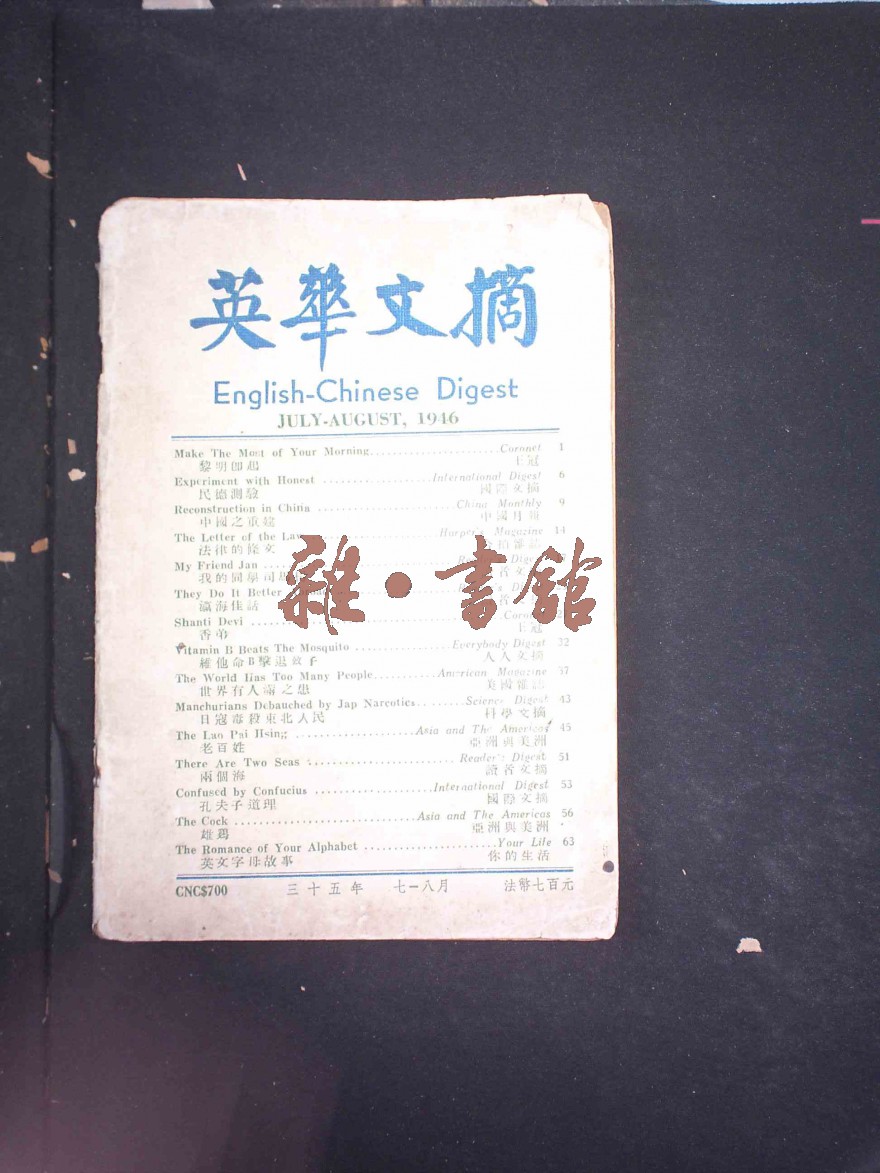 英華文摘
English-Chinese Digest
JULY-AUGUST, 1946
Make The Most of Your Morning Coronet 1
黎明即起 王冠
Experiment with Honest International Digest 6
民德測驗 國際文摘
Reconstruction in China China Monthly 9
中國之重建 中國月報
The Letter of the Law Harper's Magazine 14
法律的條文
My Friend Jan Digest
我的同學司
They Do It Better
瀛海佳話
雜·書館
Shanti Devi Coronet
香弟 王冠
Vitamin B Beats The Mosquito Everybody Digest 32
維他命B擊退蚊子 人人文摘
The World Has Too Many People American Magazine 37
世界有人滿之患 美國雜誌
Manchurians Debauched by Jap Narcotics Science Digest 43
日寇毒殺東北人民 科學文摘
The Lao Pai Hsing Asia and The Americas 45
老百姓 亞洲與美洲
There Are Two Seas Reader's Digest 51
兩個海 讀者文摘
Confused by Confucius International Digest 53
孔夫子道理 國際文摘
The Cock Asia and The Americas 56
雄鷄 亞洲與美洲
The Romance of Your Alphabet Your Life 63
英文字母故事 你的生活
CNC$700 三十五年 七—八月 法幣七百元